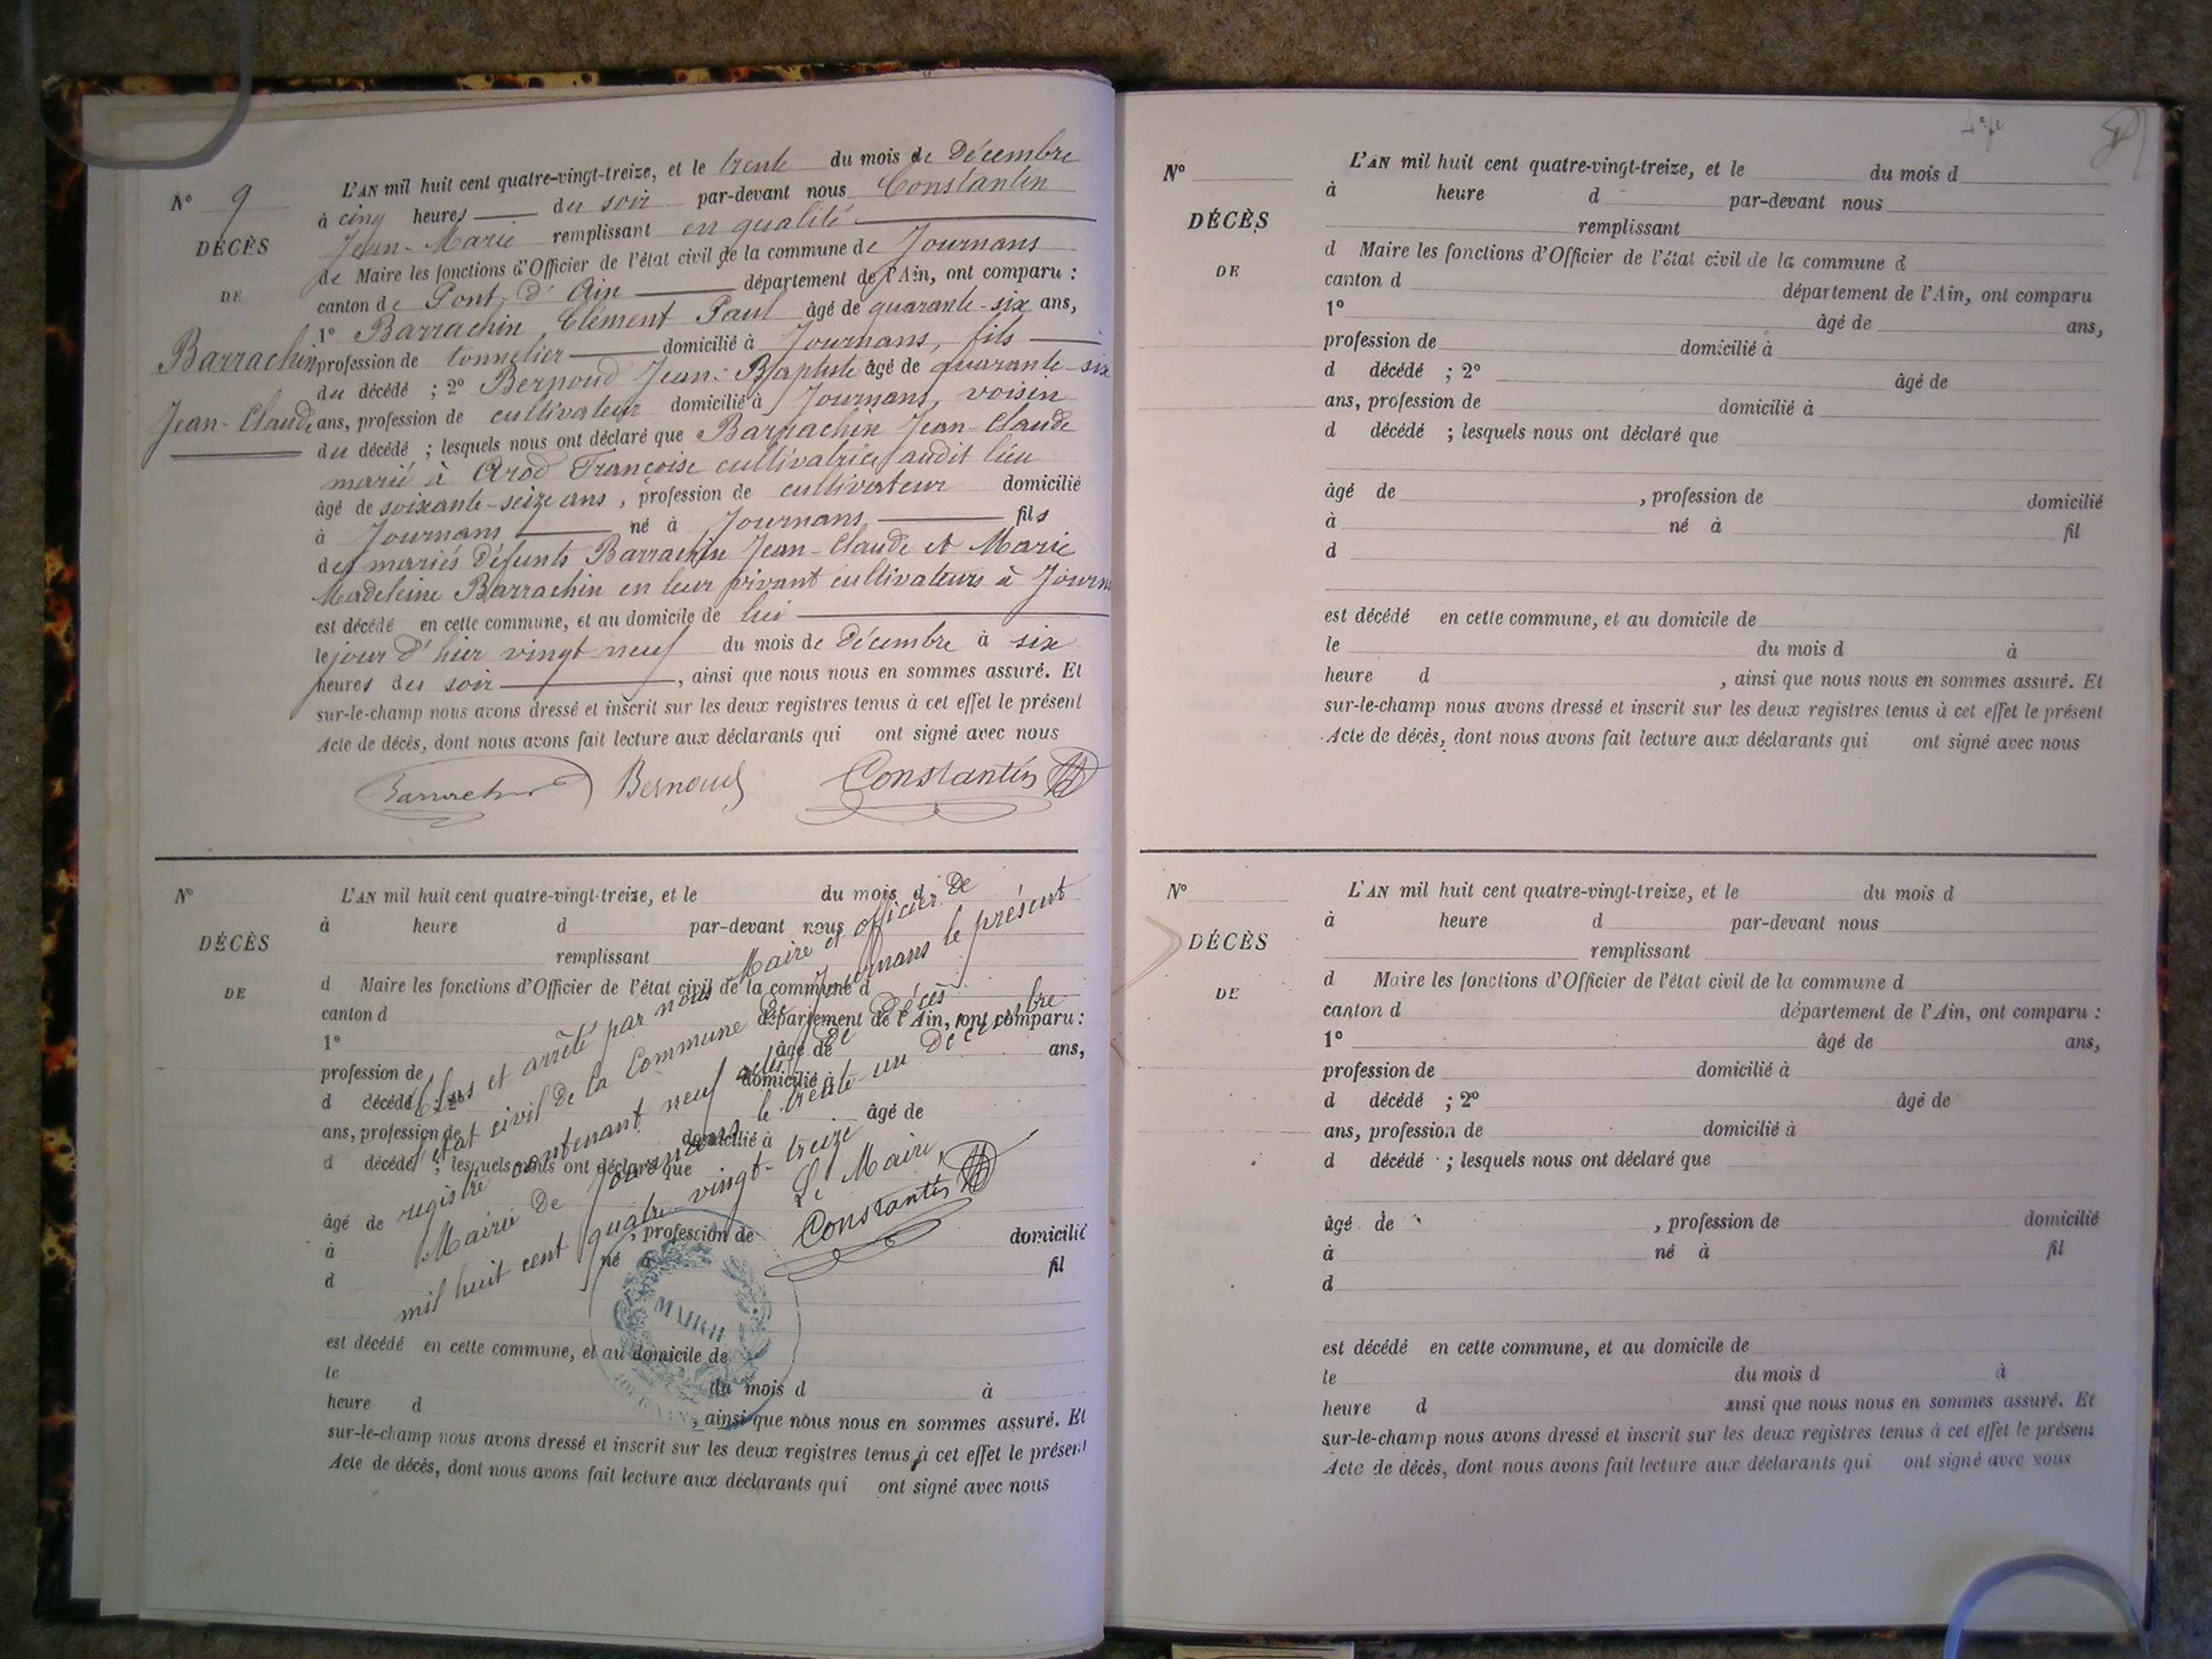 N° 9
DÉCÈS
DE
Barrachin
Jean-Claude
L'AN mil huit cent quatre-vingt-treize, et le trente du mois de Décembre
à cinq heures du soir par-devant nous Constantin
Jean-Marie remplissant en qualité
de Maire les fonctions d'Officier de l'état civil de la commune de Journans
canton de Pont-d'Ain département de l'Ain, ont comparu :
1° Barrachin Clément Paul âgé de quarante-six ans,
profession de tonnelier domicilié à Journans, fils
du décédé ; 2° Bernoud Jean-Baptiste âgé de quarante-six
ans, profession de cultivateur domicilié à Journans, voisin
du décédé ; lesquels nous ont déclaré que Barrachin Jean-Claude
marié à Arod Françoise cultivatrice audit lieu
âgé de soixante-seize ans, profession de cultivateur domicilié
à Journans né à Journans fils
des mariés défunts Barrachin Jean-Claude et Marie
Madeleine Barrachin en leur vivant cultivateurs à Journ
est décédé en cette commune, et au domicile de lui
le jour d'hier vingt neuf du mois de Décembre à six
heures du soir, ainsi que nous nous en sommes assuré. Et
sur-le-champ nous avons dressé et inscrit sur les deux registres tenus à cet effet le présent
Acte de décès, dont nous avons fait lecture aux déclarants qui ont signé avec nous
Barrachin Bernoud Constantin
N°
DÉCÈS
DE
L'AN mil huit cent quatre-vingt-treize, et le du mois d
à heure d par-devant nous
remplissant
d Maire les fonctions d'Officier de l'état civil de la commune d
canton d département de l'Ain, ont comparu :
1° âgé de ans,
profession de domicilié à
d décédé ; 2° âgé de
ans, profession de domicilié à
d décédé ; lesquels nous ont déclaré que
âgé de , profession de domicilié
à né à fil
d
est décédé en cette commune, et au domicile de
le du mois d à
heure d , ainsi que nous nous en sommes assuré. Et
sur-le-champ nous avons dressé et inscrit sur les deux registres tenus à cet effet le présent
Acte de décès, dont nous avons fait lecture aux déclarants qui ont signé avec nous
Clos et arrêté par nous Maire et officier de
l'état civil de la Commune de Journans le présent
registre contenant neuf actes de Décès
Mairie de Journans le trente-un Décembre
mil huit cent quatre vingt-treize
Le Maire,
Constantin
MAIRIE
N°
DÉCÈS
DE
L'AN mil huit cent quatre-vingt-treize, et le du mois d
à heure d par-devant nous
remplissant
d Maire les fonctions d'Officier de l'état civil de la commune d
canton d département de l'Ain, ont comparu
1° âgé de ans,
profession de domicilié à
d décédé ; 2° âgé de
ans, profession de domicilié à
d décédé ; lesquels nous ont déclaré que
âgé de , profession de domicilié
à né à fil
d
est décédé en cette commune, et au domicile de
le du mois d à
heure d , ainsi que nous nous en sommes assuré. Et
sur-le-champ nous avons dressé et inscrit sur les deux registres tenus à cet effet le présent
Acte de décès, dont nous avons fait lecture aux déclarants qui ont signé avec nous
N°
DÉCÈS
DE
L'AN mil huit cent quatre-vingt-treize, et le du mois d
à heure d par-devant nous
remplissant
d Maire les fonctions d'Officier de l'état civil de la commune d
canton d département de l'Ain, ont comparu :
1° âgé de ans,
profession de domicilié à
d décédé ; 2° âgé de
ans, profession de domicilié à
d décédé ; lesquels nous ont déclaré que
âgé de , profession de domicilié
à né à fil
d
est décédé en cette commune, et au domicile de
le du mois d à
heure d ainsi que nous nous en sommes assuré. Et
sur-le-champ nous avons dressé et inscrit sur les deux registres tenus à cet effet le présent
Acte de décès, dont nous avons fait lecture aux déclarants qui ont signé avec nous